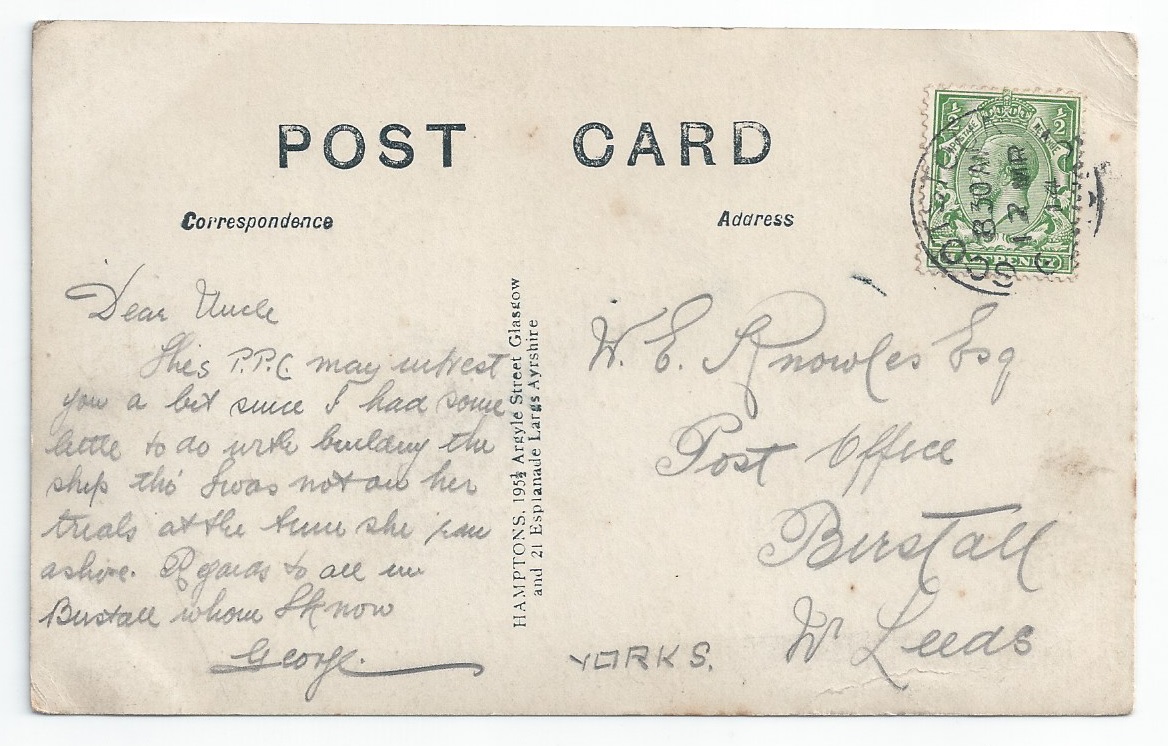 POST CARD
Correspondence
Address
Dear Uncle
This P.P.C. may interest
you a bit since I had some
little to do with building the
ship tho' I was not on her
trials at the time she ran
ashore. Regards to all in
Birstall whom I know
George.
HAMPTONS, 195½ Argyle Street Glasgow
and 21 Esplanade Largs Ayrshire
W. E. Knowles Esq
Post Office
Birstall
Nr Leeds
YORKS.
½ ½
POSTAGE REVENUE
HALFPENNY
8.30 AM
17 MR
14